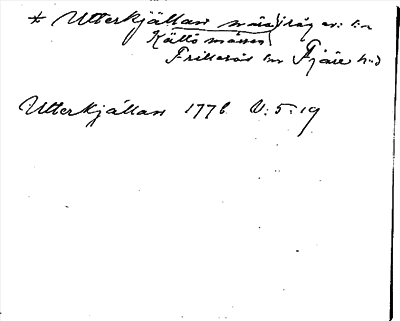 * Utterkjällan
Källö mosse
Frillesås sn Fjäre hd
Utterkjällan 1776 V: 5: 19